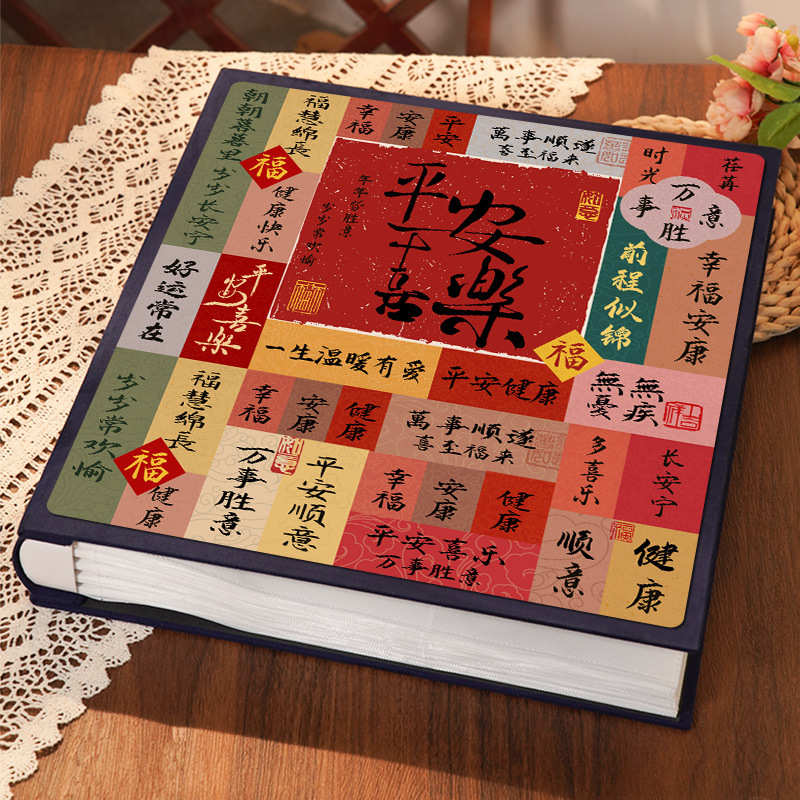 朝朝暮暮里
岁岁长安宁
福慧綿長
福
健康快乐
幸福
安康
平安
萬事順遂
喜至福来
时光
荏苒
万事胜意
年年皆胜意
岁岁常欢愉
平安
喜樂
前程似锦
幸福安康
好运常在
平安喜樂
一生温暖有爱
平安健康
福
無憂
無疾
岁岁常欢愉
福慧綿長
福
健康
幸福
安康
健康
萬事順遂
喜至福来
多喜乐
长安宁
万事胜意
平安顺意
幸福
安康
健康
平安喜乐
万事胜意
顺意
健康